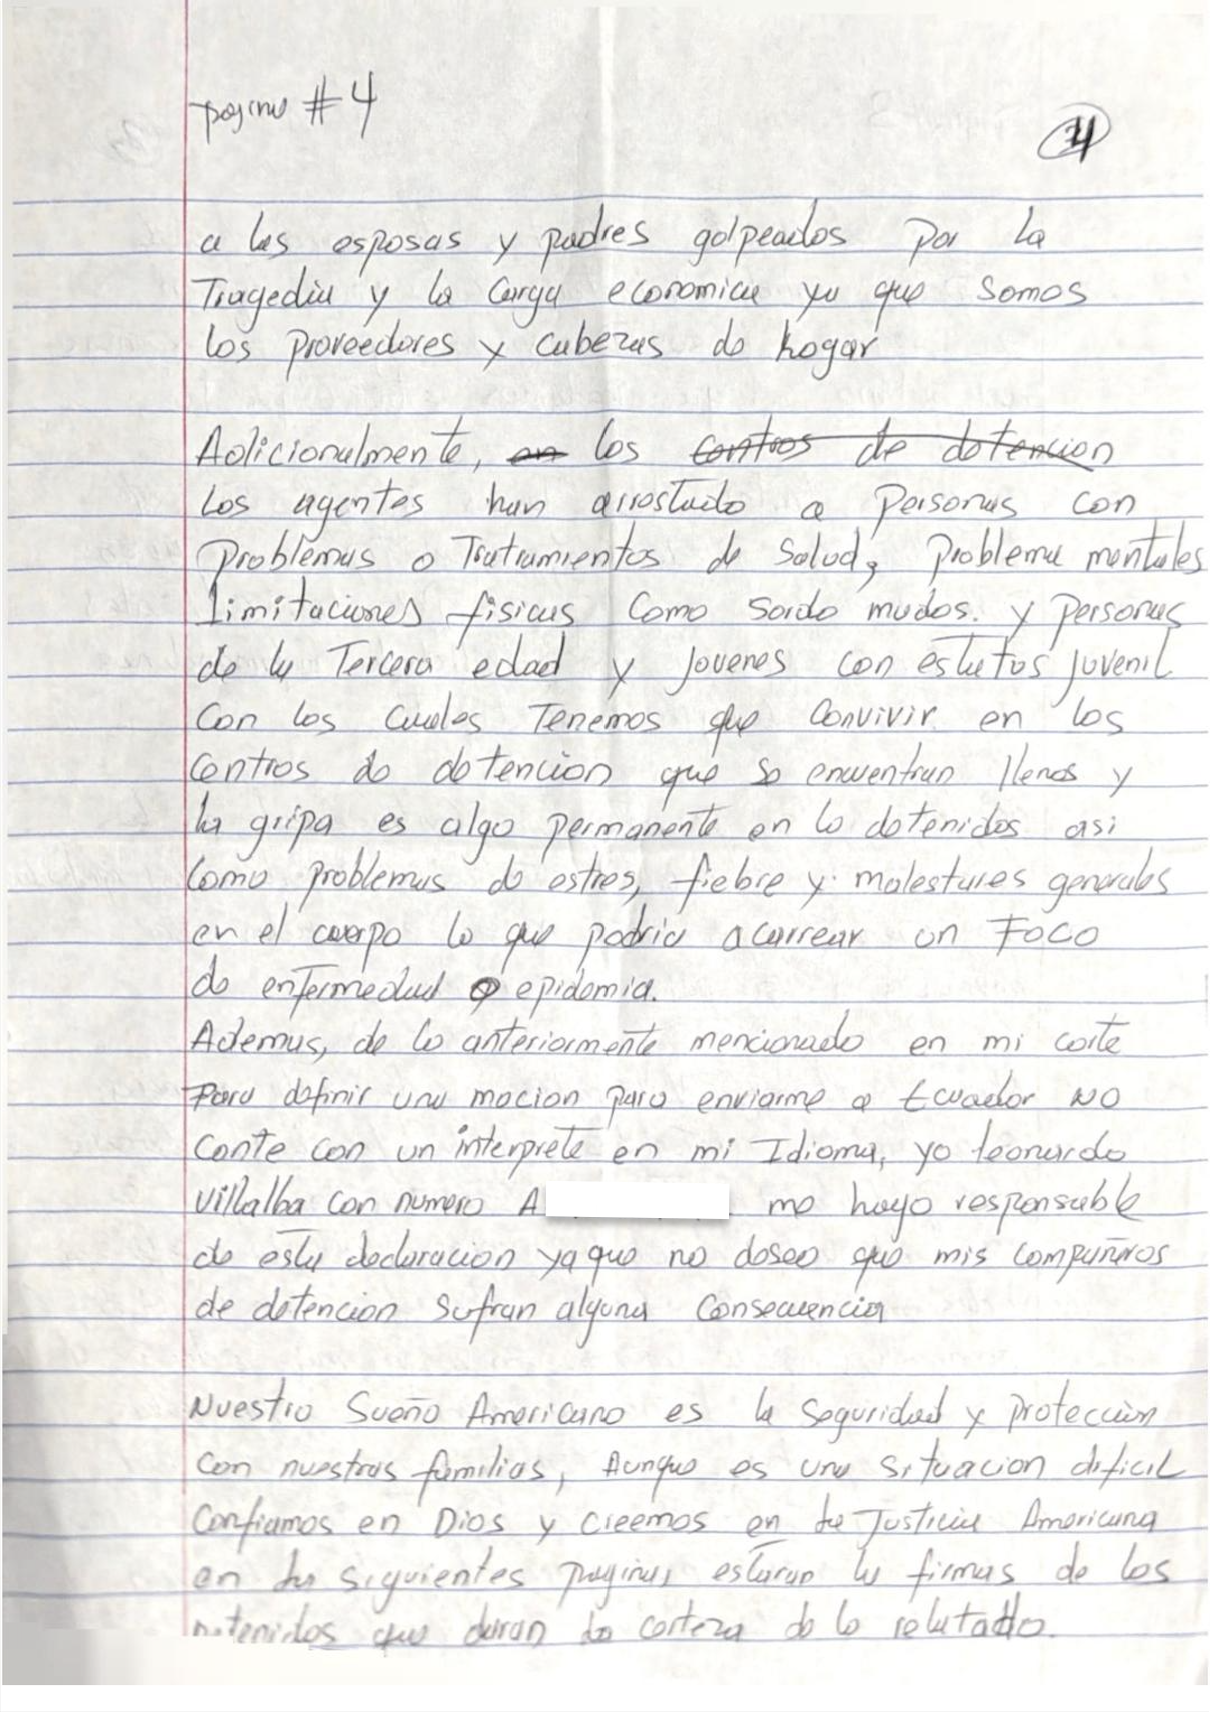 pagina #4
4
a las esposas y padres golpeados por la
Tragedia y la Carga economica ya que somos
los proveedores y cabezas de hogar
Adicionalmente, en los centros de detencion
Los agentes han arrestado a Personas con
Problemas o Tratamientos de Salud, Problema mentales
limitaciones fisicas como sordo mudos. y Personas
de la Tercera edad y jovenes con estatus juvenil
con los cuales Tenemos que convivir en los
centros de detencion que se encuentran llenos y
la gripa es algo permanente en lo detenidos asi
como problemas de estres, fiebre y malestares generales
en el cuerpo lo que podria acarrear un Foco
de enfermedad o epidemia.
Ademas, de lo anteriormente mencionado en mi corte
Para definir una mocion para enviarme a Ecuador NO
Conte con un interprete en mi Idioma, yo leonardo
Villalba con numero A me hago responsable
de esta declaracion ya que no deseo que mis compañeros
de detencion Sufran alguna Consecuencia
Nuestro Sueño Americano es la Seguridad y protección
con nuestras familias, Aunque es una situacion dificil
Confiamos en Dios y creemos en la Justicia Americana
en la siguientes paginas estaran la firmas de los
detenidos que daran la certeza de lo relatado.